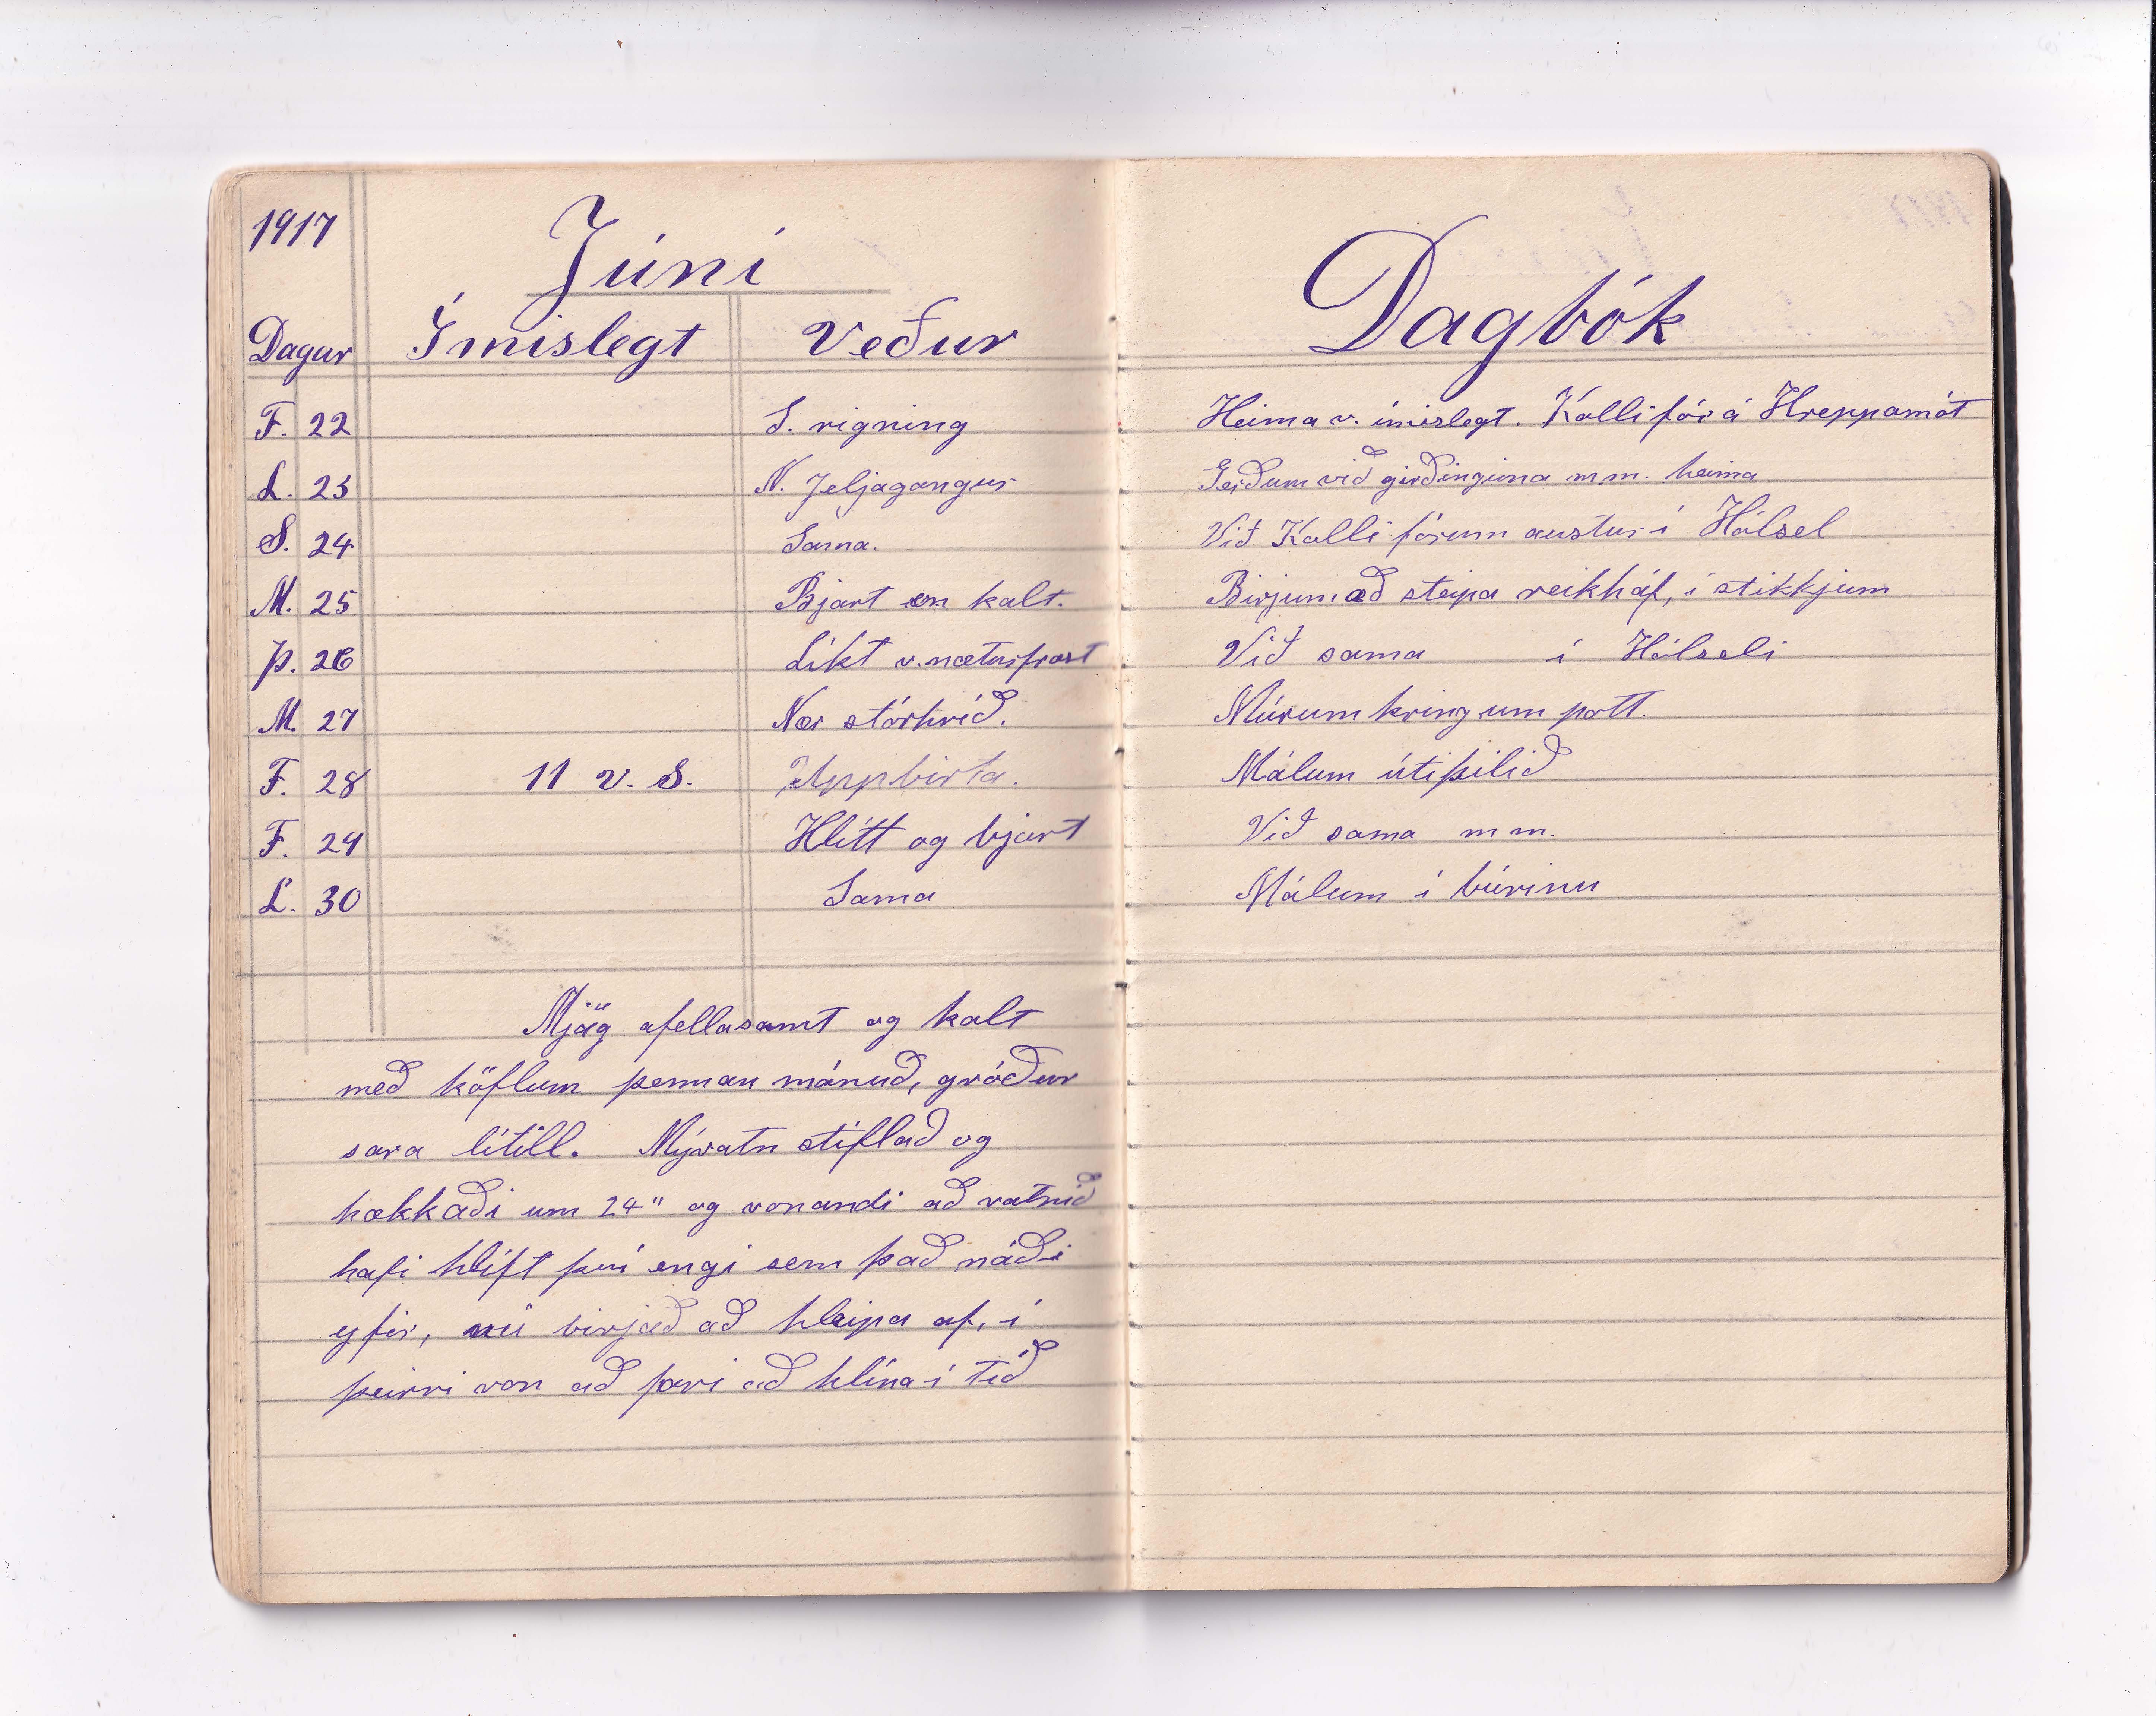 1917
Júní
Dagur Ímislegt Veður
F. 22 S. rigning
L. 23 N. Jeljagangur
S. 24 Sama.
M. 25 Bjart en kalt.
Þ. 26 Líkt v. næturfrost
M. 27 Nær stórhríð.
F. 28 11 v. S. Uppbirta.
F. 29 Hlítt og bjart
L. 30 Sama
Mjög áfellasamt og kalt
með köflum þennan mánuð, gróður
sára lítill. Mývatn stíflað og
hækkaði um 24" og vonandi að vatnið
hafi hlíft því engi sem það náði
yfir, nú birjað að hleipa af, í
þeirri von að fari að hlína í tíð
Dagbók
Heima v. ímislegt. Kalli fór á Hreppamót
Gerðum við girðinguna m.m. heima
Við Kalli fórum austur í Hólsel
Birjum að steipa reikháf, í stikkjum
Við sama í Hólseli
Múrum kring um pott.
Málum útiþilið
Við sama m m.
Málum í búrinu